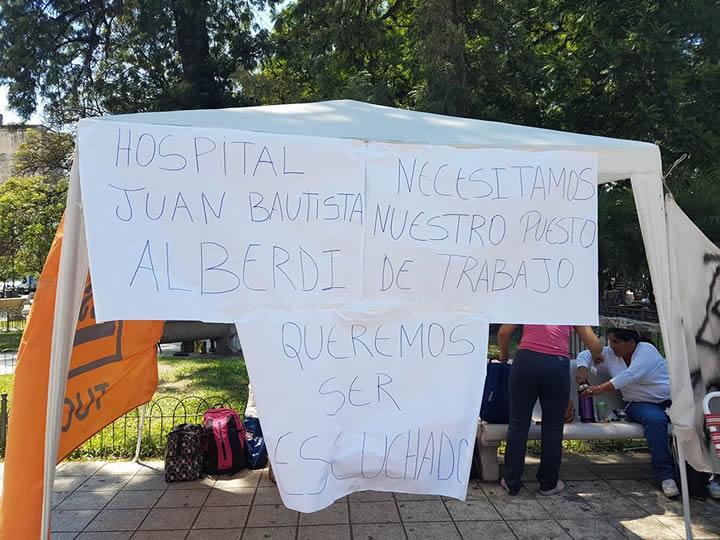 HOSPITAL
JUAN BAUTISTA
ALBERDI
NECESITAMOS
NUESTRO PUESTO
DE TRABAJO
QUEREMOS
SER
ESCUCHADO
TUC